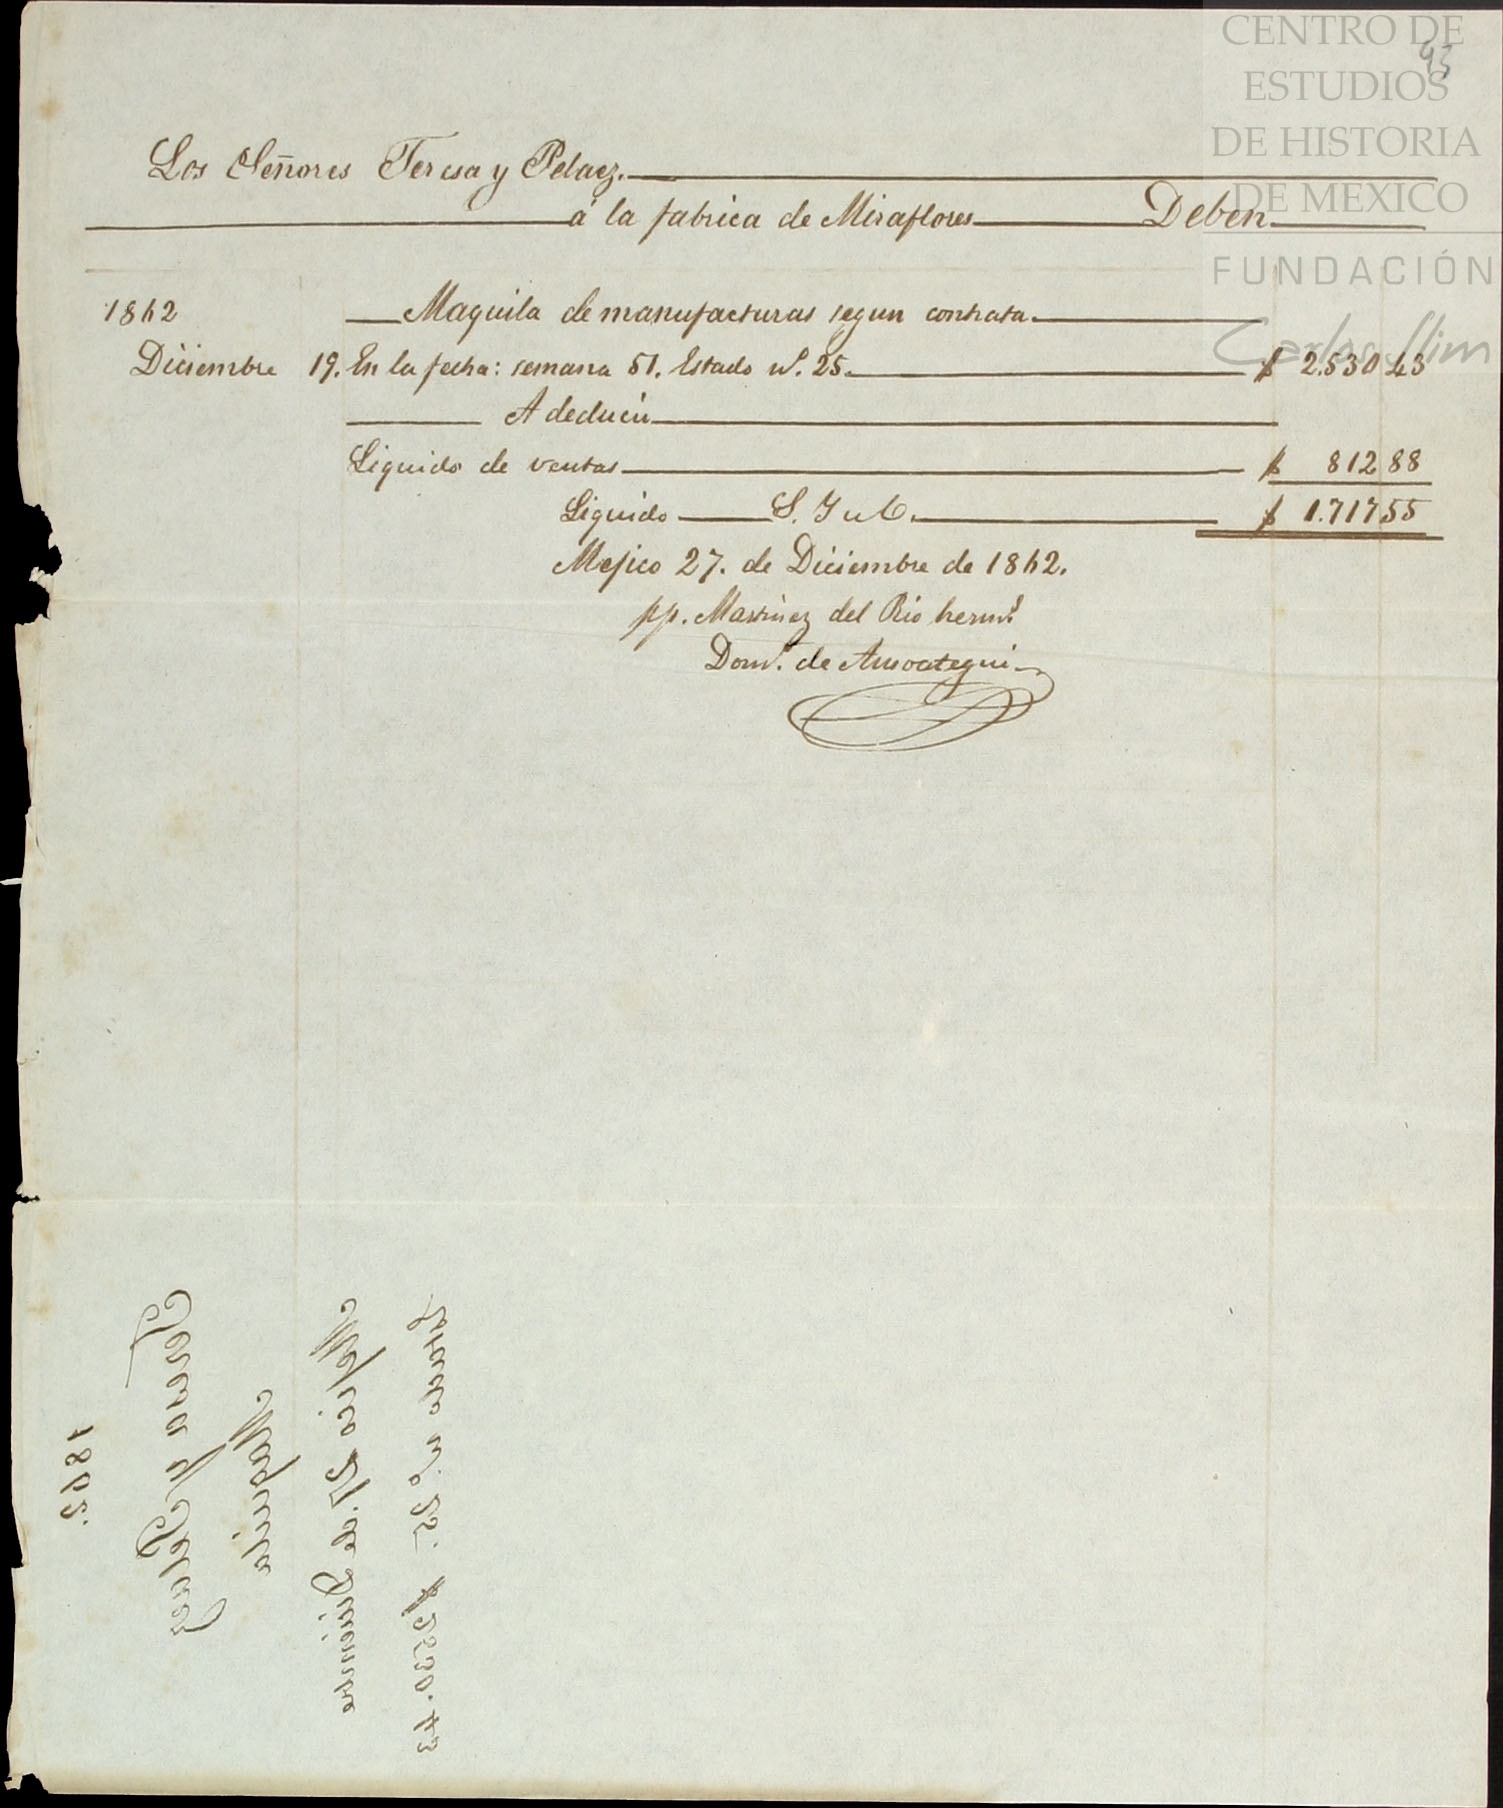 CENTRO DE
ESTUDIOS
DE HISTORIA
DE MEXICO
FUNDACIÓN
Carlos Slim
93
Los Señores Teresa y Pelaez.
á la fabrica de Miraflores Deben
1862 Maquila de manufacturas segun contrata.
Diciembre 19. En la fecha: semana 51. Estado nº. 25. $ 2.530 43
A deducir
Liquido de ventas $ 812 88
Liquido S. Y u O. $ 1.717 55
Mejico 27. de Diciembre de 1862.
pp. Martinez del Rio hermˢ.
Domº. de Ansoategui
1862.
Teresa y Pelaez
Maquila
Mejico 27. de Diciembre
Estado nº. 25. $ 2530. 43